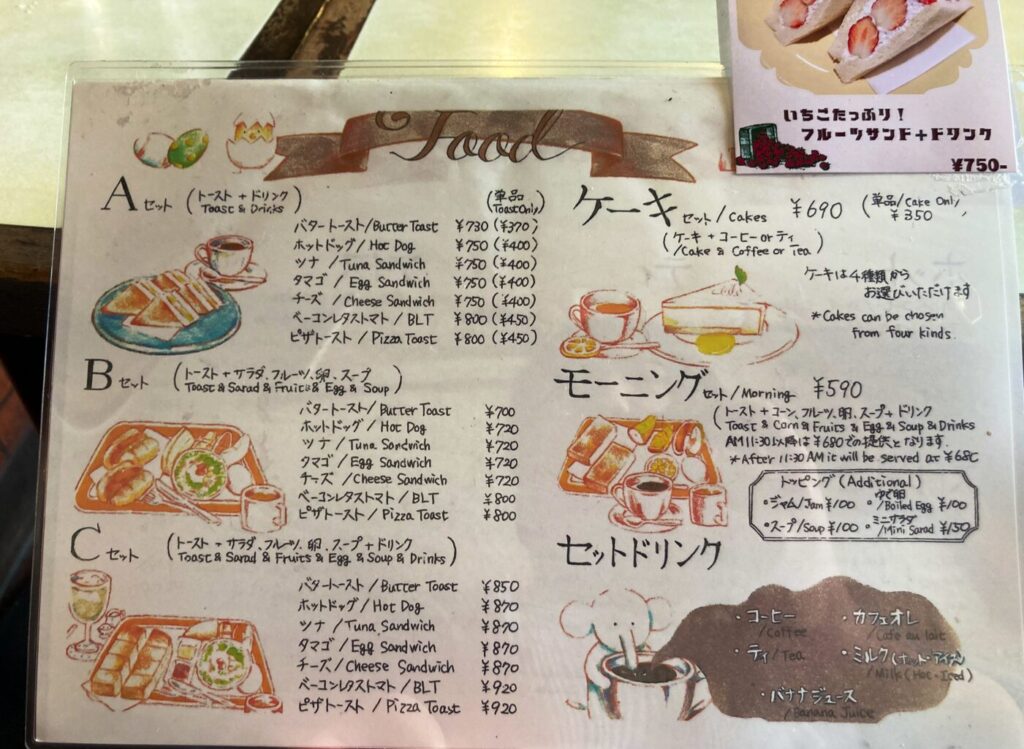 いちごたっぷり!
フルーツサンド+ドリンク
¥750-
Food
Aセット (トースト + ドリンク)
Toast & Drinks
(単品)
(Toast Only)
バタートースト/Butter Toast ¥730 (¥370)
ホットドッグ/Hot Dog ¥750 (¥400)
ツナ/Tuna Sandwich ¥750 (¥400)
タマゴ/Egg Sandwich ¥750 (¥400)
チーズ/Cheese Sandwich ¥750 (¥400)
ベーコンレタストマト/BLT ¥800 (¥450)
ピザトースト/Pizza Toast ¥800 (¥450)
Bセット (トースト+サラダ、フルーツ、卵、スープ)
Toast & Sarad & Fruits & Egg & Soup
バタートースト/Butter Toast ¥700
ホットドッグ/Hot Dog ¥720
ツナ/Tuna Sandwich ¥720
タマゴ/Egg Sandwich ¥720
チーズ/Cheese Sandwich ¥720
ベーコンレタストマト/BLT ¥800
ピザトースト/Pizza Toast ¥800
Cセット (トースト+サラダ、フルーツ、卵、スープ+ドリンク)
Toast & Sarad & Fruits & Egg & Soup & Drinks
バタートースト/Butter Toast ¥850
ホットドッグ/Hot Dog ¥870
ツナ/Tuna Sandwich ¥870
タマゴ/Egg Sandwich ¥870
チーズ/Cheese Sandwich ¥870
ベーコンレタストマト/BLT ¥920
ピザトースト/Pizza Toast ¥920
ケーキセット/Cakes ¥690 (単品/Cake Only)
¥350
(ケーキ+コーヒーorティ)
/Cake & Coffee or Tea
ケーキは4種類から
お選びいただけます
*Cakes can be chosen
from four kinds.
モーニングセット/Morning ¥590
(トースト+コーン、フルーツ、卵、スープ+ドリンク
Toast & Corn & Fruits & Egg & Soup & Drinks
AM11:30以降は¥680での提供となります.
*After 11:30 AM it will be served at ¥680
トッピング(Additional)
・ジャム/Jam ¥100 ・ゆで卵/Boiled Egg ¥100
・スープ/Soup ¥100 ・ミニサラダ/Mini Sarad ¥150
セットドリンク
・コーヒー/Coffee ・カフェオレ/Cafe au lait
・ティ/Tea ・ミルク(ホット・アイス)/Milk (Hot・Iced)
・バナナジュース/Banana Juice